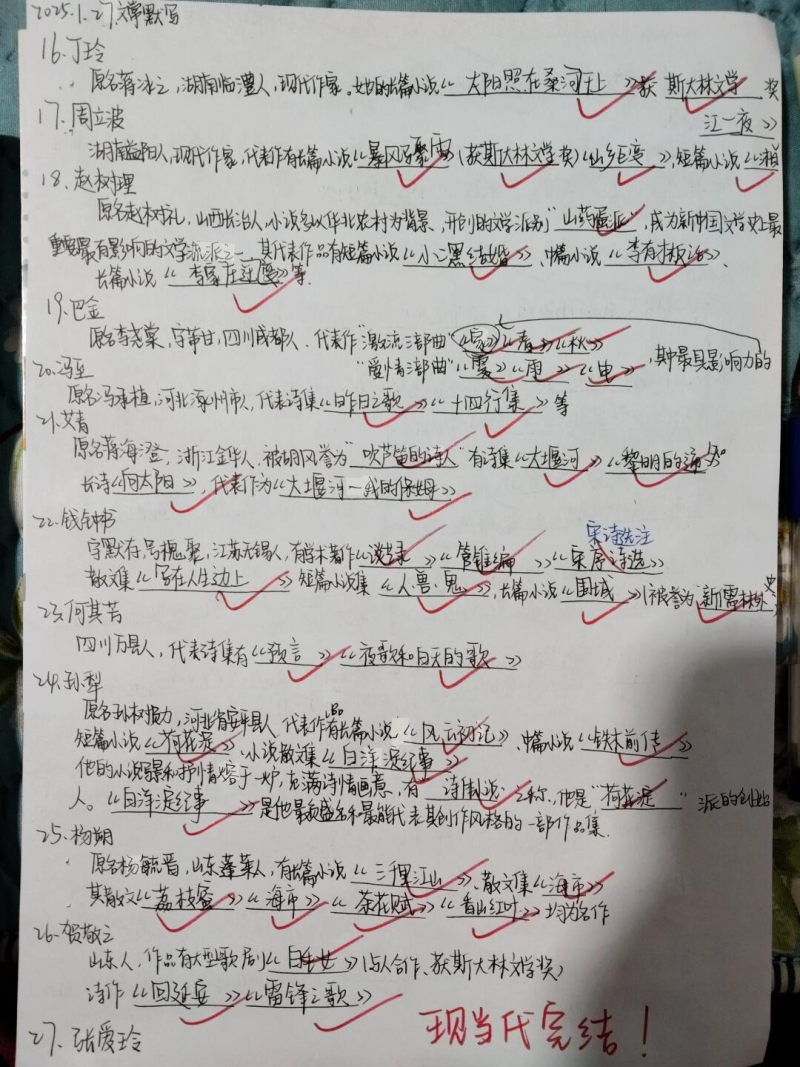 2025.1.27.文常默写
16.丁玲
原名蒋冰之,湖南临澧人,现代作家。她的长篇小说《太阳照在桑河上》获斯大林文学奖
17.周立波
江一夜》
湖南益阳人,现代作家,代表作有长篇小说《暴风骤雨》(获斯大林文学奖)《山乡巨变》,短篇小说《湘
18.赵树理
原名赵树礼,山西长治人,小说多以华北农村为背景,开创的文学派别"山药蛋派",成为新中国文学史上最
重要最有影响的文学流派之一,其代表作品有短篇小说《小二黑结婚》、中篇小说《李有才板话》、
长篇小说《李家庄的变迁》等
19.巴金
原名李尧棠,字芾甘,四川成都人.代表作"激流三部曲"《家》《春》《秋》
"爱情三部曲"《雾》《雨》《电》,其中最具影响力的
20.冯至
原名冯承植,河北涿州市人,代表诗集《昨日之歌》《十四行集》等
21.艾青
原名蒋海澄,浙江金华人,被胡风誉为"吹芦笛的诗人"有诗集《大堰河》《黎明的通知》
长诗《向太阳》,代表作为《大堰河—我的保姆》
22.钱钟书
宋诗选注
字默存,号槐聚,江苏无锡人,有学术著作《谈艺录》《管锥编》《宋序诗选》
散文集《写在人生边上》短篇小说集《人.兽.鬼》,长篇小说《围城》(被誉为"新儒林外史
23.何其芳
四川万县人,代表诗集有《预言》《夜歌和白天的歌》
24.孙犁
原名孙树勋,河北省安平县人 代表作品有长篇小说《风云初记》、中篇小说《铁木前传》
短篇小说《荷花淀》、小说散文集《白洋淀纪事》
他的小说写景和抒情熔于一炉,充满诗情画意,有"诗体小说"之称,他是"荷花淀"派的创始
人。《白洋淀纪事》是他最负盛名和最能代表其创作风格的一部作品集.
25.杨朔
原名杨毓晋,山东蓬莱人,有长篇小说《三千里江山》、散文集《海市》
其散文《荔枝蜜》《海市》《茶花赋》《香山红叶》均为名作
26.贺敬之
山东人,作品有大型歌剧《白毛女》(与人合作、获斯大林文学奖)
诗作《回延安》《雷锋之歌》
27.张爱玲
现当代完结!